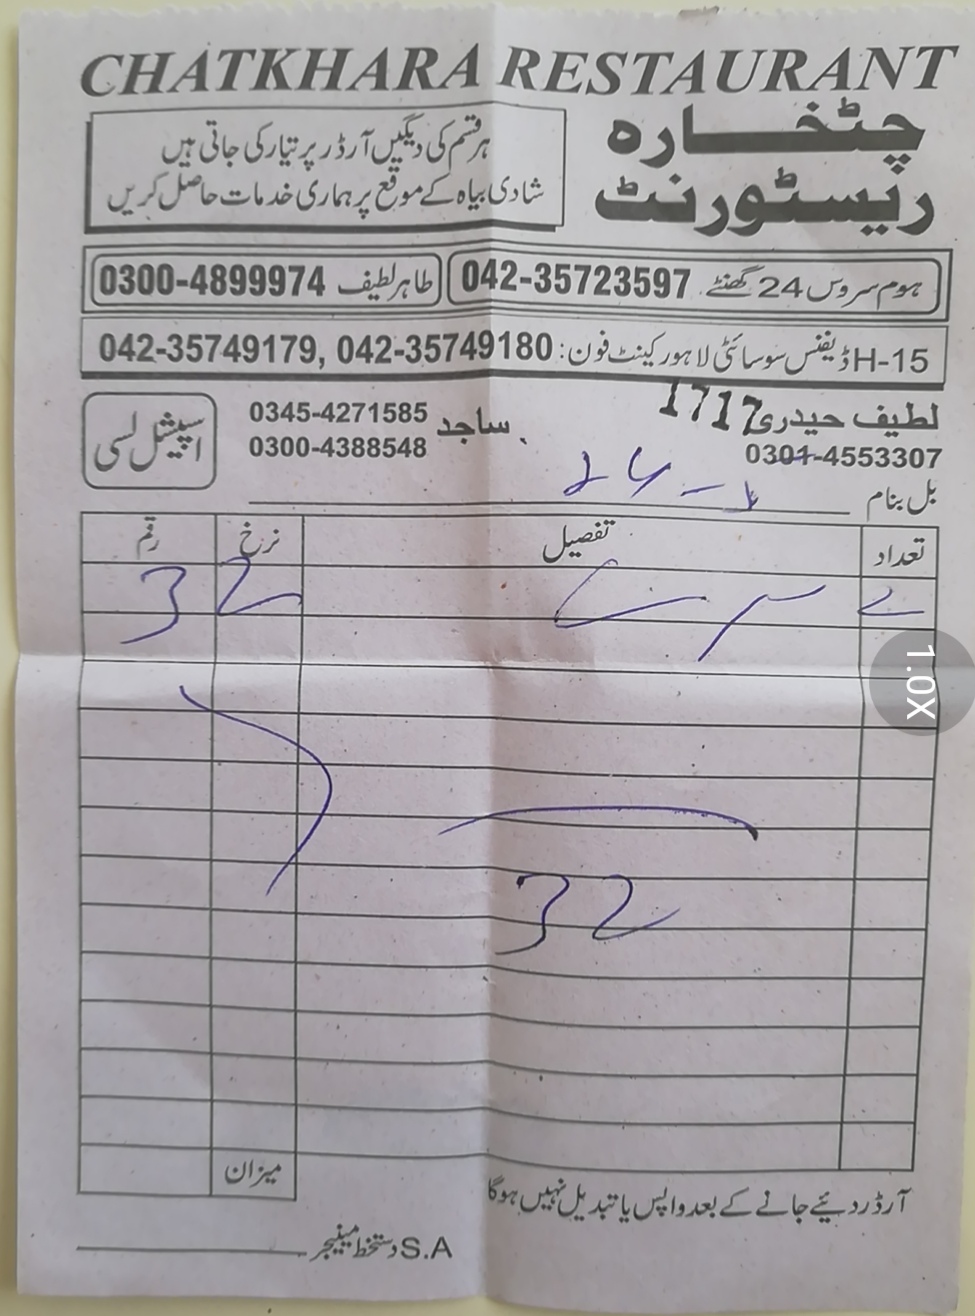 CHATKHARA RESTAURANT
چٹخارہ
ریسٹورنٹ
ہر قسم کی دیگیں آرڈر پر تیار کی جاتی ہیں
شادی بیاہ کے موقع پر ہماری خدمات حاصل کریں
ہوم سروس 24 گھنٹے 042-35723597
طاہر لطیف 0300-4899974
15-H ڈیفنس سوسائٹی لاہور کینٹ فون: 042-35749180 ,042-35749179
لطیف حیدری 1717
0301-4553307
ساجد 0345-4271585
0300-4388548
اسپیشل لسی
بل بنام
تعداد تفصیل نرخ رقم
32
32
میزان
آرڈر دئیے جانے کے بعد واپس یا تبدیل نہیں ہوگا
S.A دستخط مینیجر